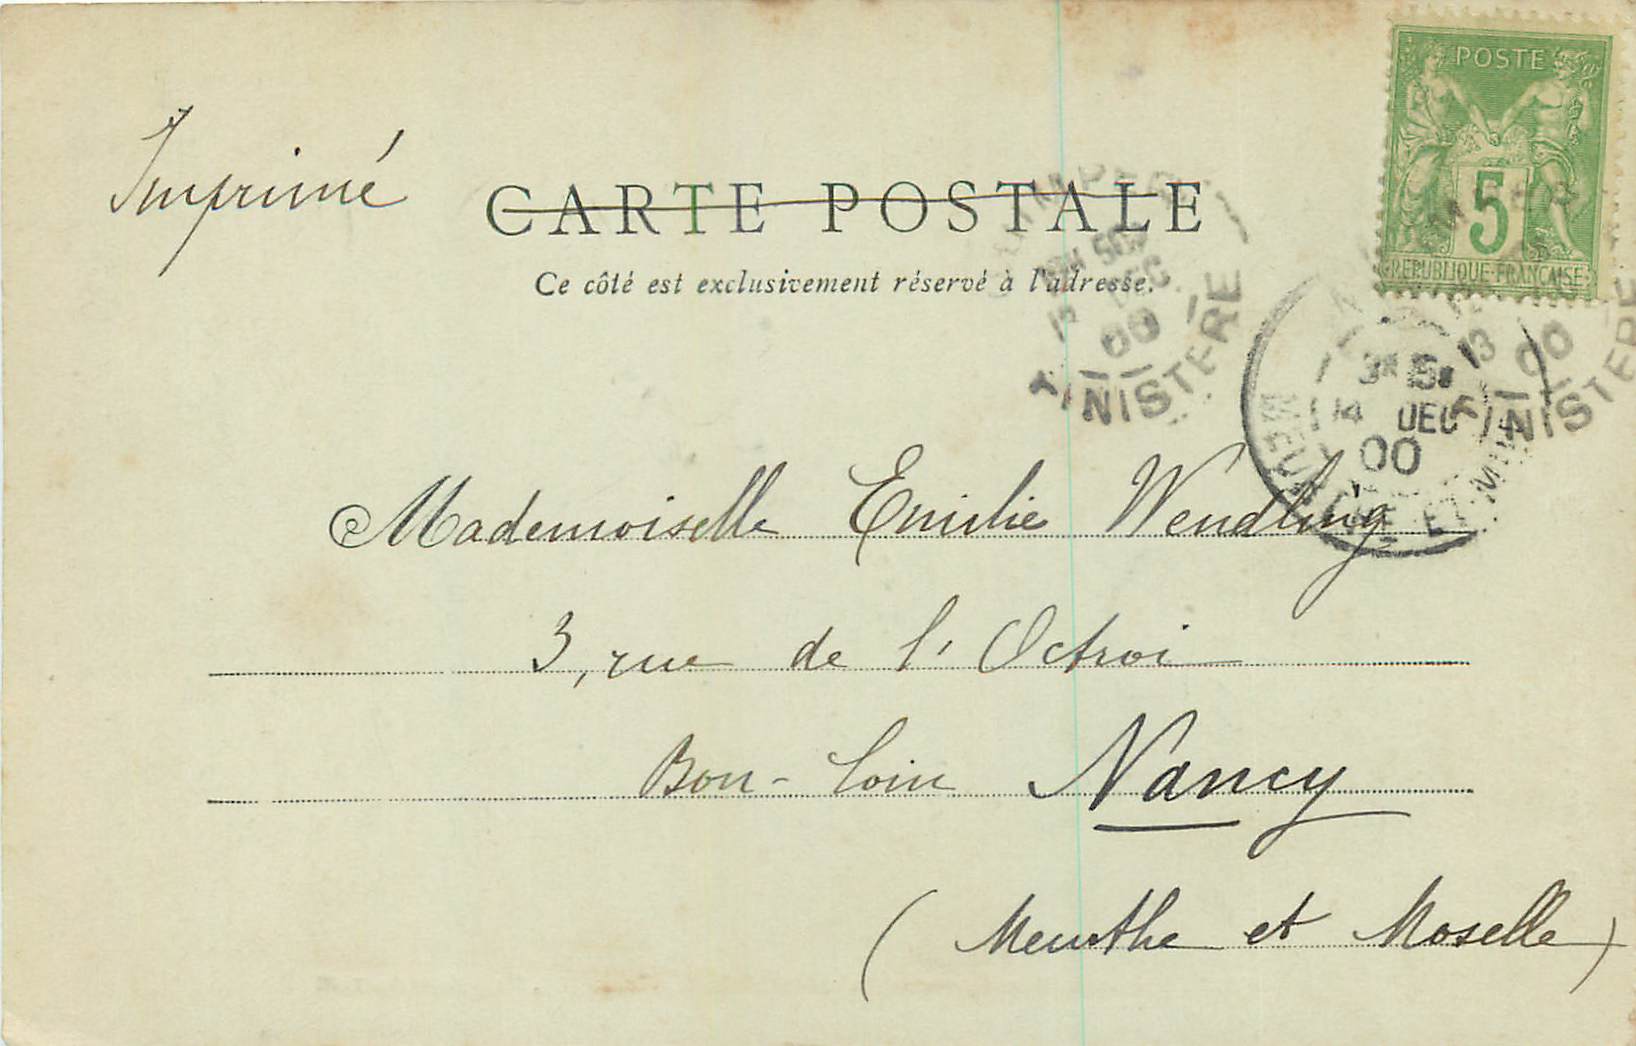 POSTE
5
REPUBLIQUE FRANCAISE
Imprimé
CARTE POSTALE
Ce côté est exclusivement réservé à l'adresse.
QUIMPER
13 DEC
00
FINISTERE
13
00
FINISTERE
3E
14 DEC
00
MEURTHE ET M
Mademoiselle Emilie Wendling
3, rue de l'Octroi
Bon-Coin Nancy
(Meurthe et Moselle)